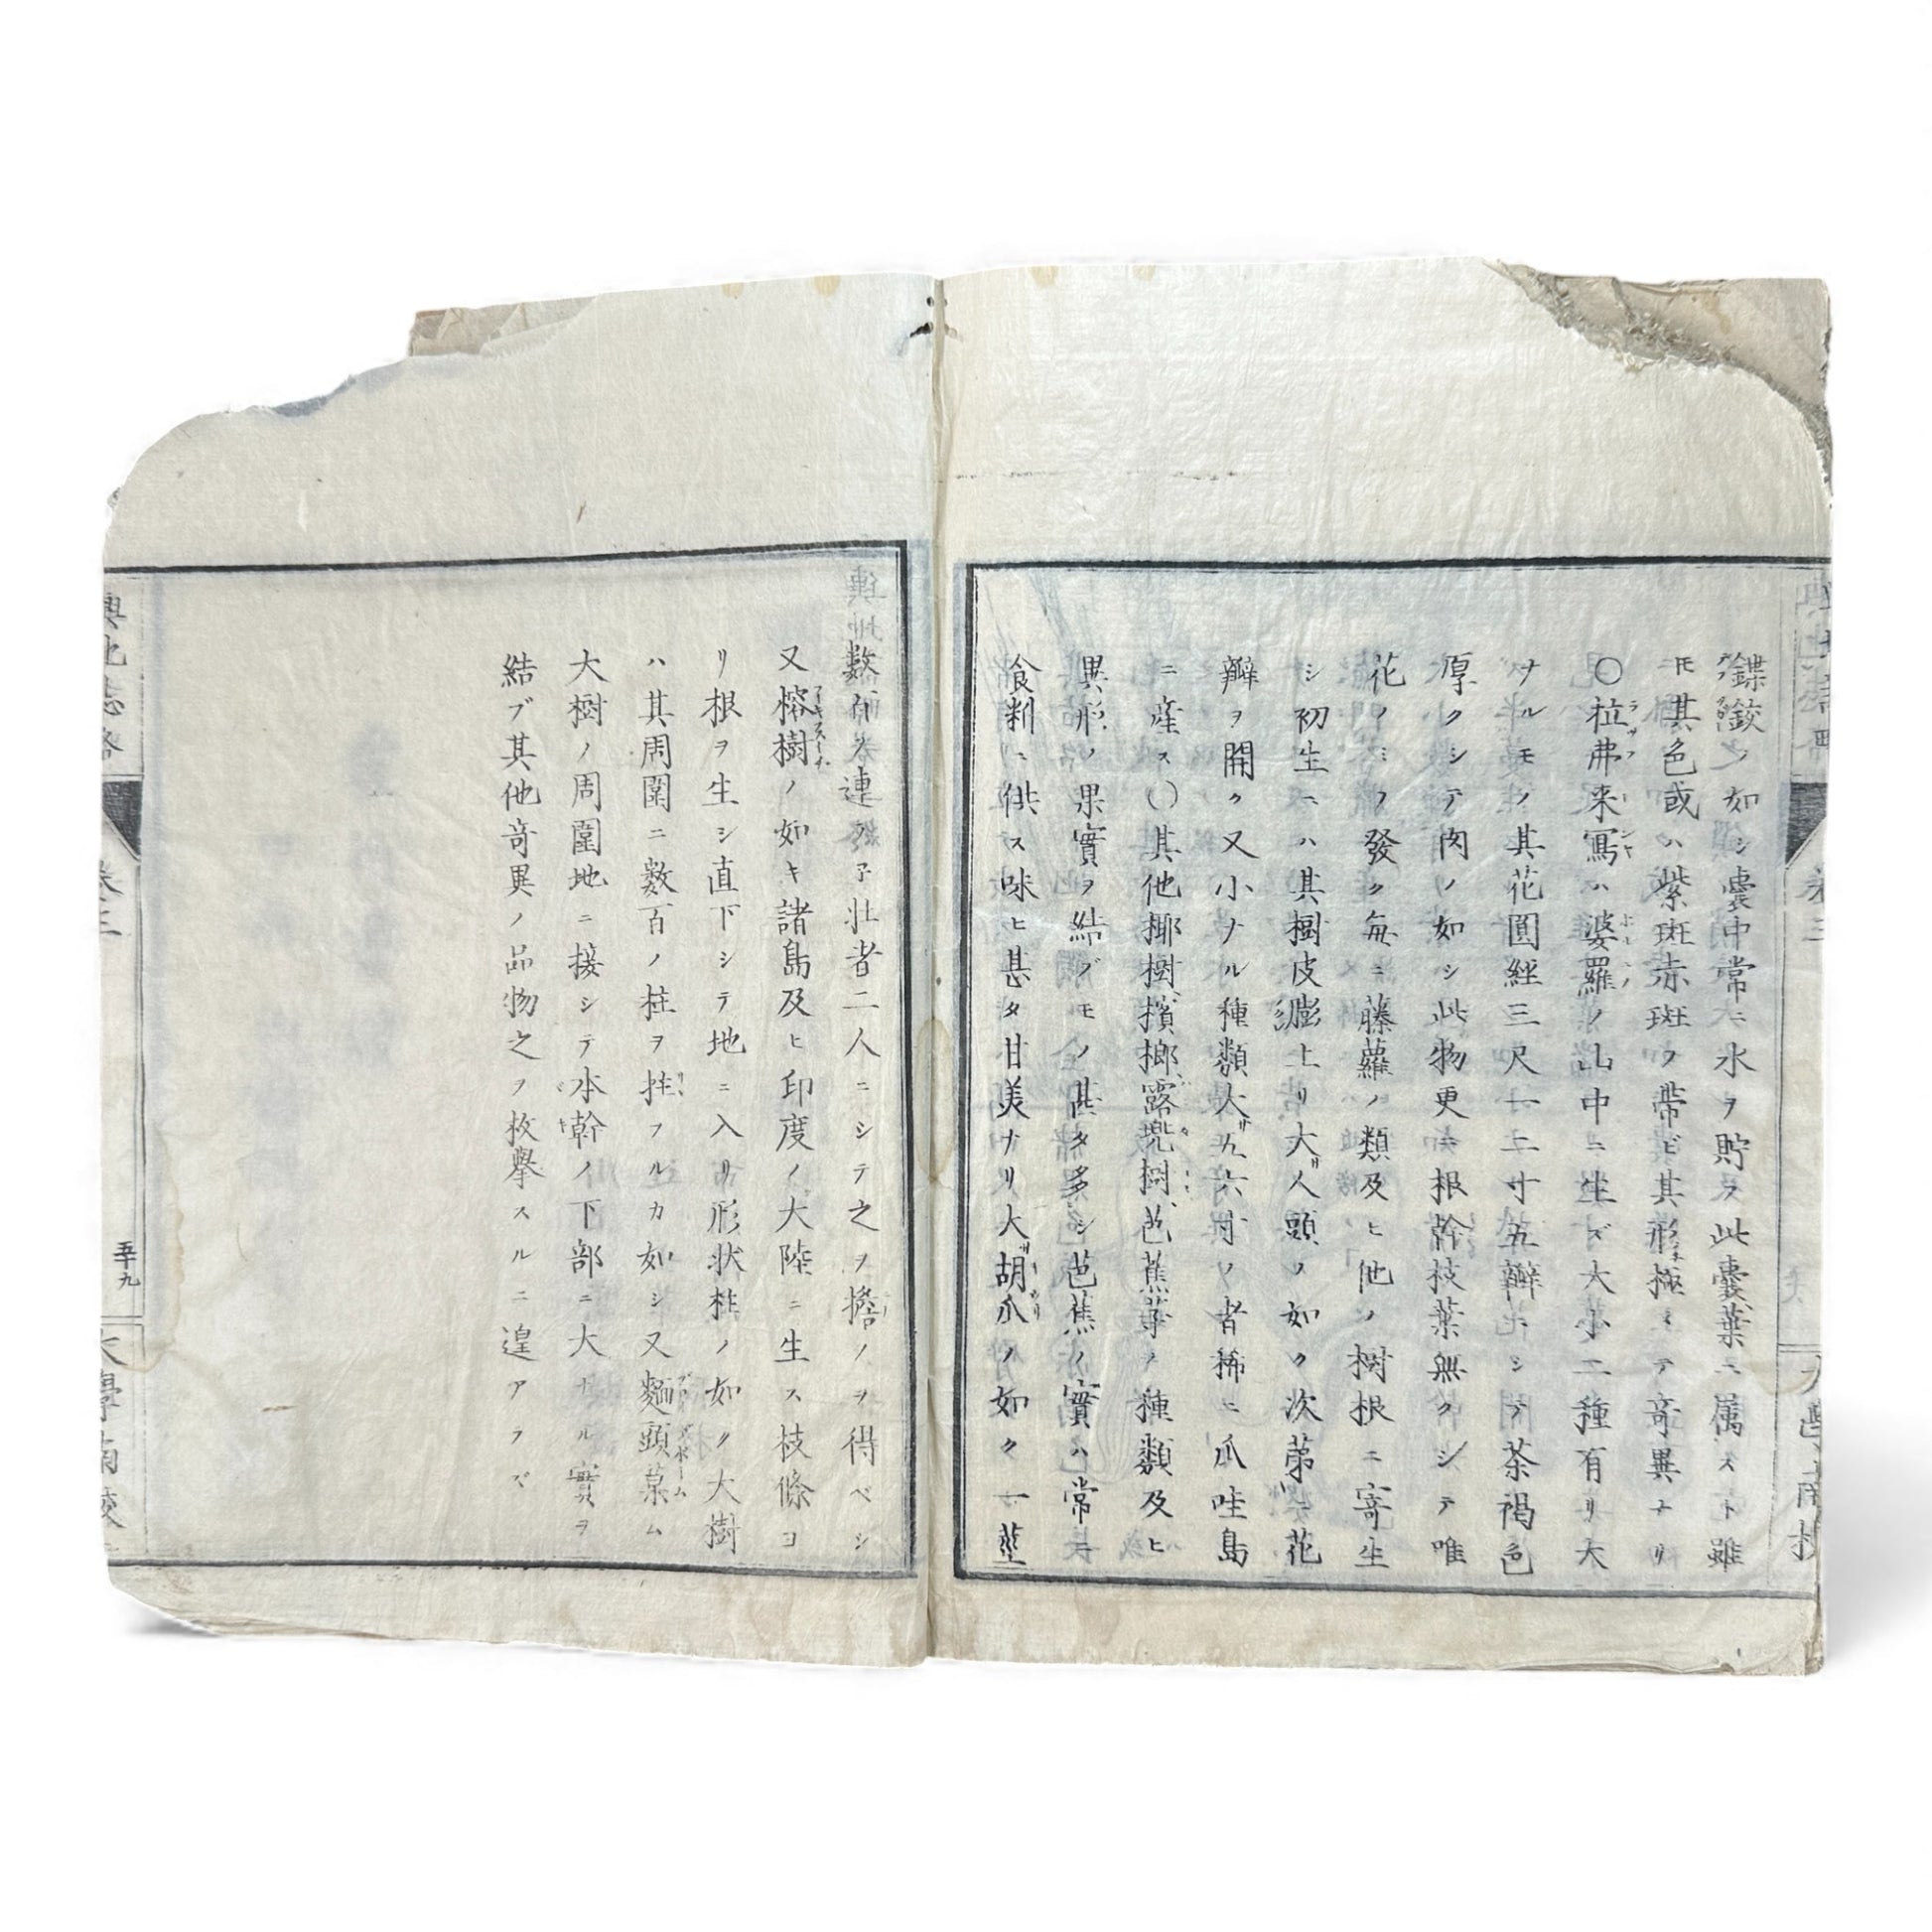 鏁鉸ノ如シ嚢中常ニ水ヲ貯フ此嚢葉ニ属スト雖
モ其色或ハ紫斑赤斑ヲ帯ビ其形極メテ奇異ナリ
〇拉弗来寫ハ婆羅ノ山中ニ生ズ大小二種有リ大
ナルモノ其花圓經三尺一二寸五瓣ニシテ茶褐色
厚クシテ肉ノ如シ此物更ニ根幹枝葉無クシテ唯
花ノミヲ發ク毎ニ藤蘿ノ類及ヒ他ノ樹根ニ寄生
シ初生ニハ其樹皮膨上リ大人頭ノ如ク次第ニ花
瓣ヲ開ク又小ナル種類大サ五六寸ノ者稀ニ爪哇島
ニ産ス〇其他椰樹檳榔露兜樹芭蕉等ノ種類及ヒ
異形ノ果實ヲ結ブモノ甚タ多シ芭蕉ノ實ハ常ニ
食料ニ供ス味ヒ甚タ甘美ナリ大サ胡瓜ノ如ク一莖
數百ヲ連ヌ壮者二人ニシテ之ヲ擔フヲ得ベシ
又榕樹ノ如キ諸島及ヒ印度ノ大陸ニ生ス枝條ヨ
リ根ヲ生シ直下シテ地ニ入リ形状柱ノ如ク大樹
ハ其周圍ニ數百ノ柱ヲ拄フルカ如シ又麵頭菓ム
大樹ノ周圍地ニ接シテ本幹ノ下部ニ大ナル實ヲ
結ブ其他奇異ノ品物之ヲ枚擧スルニ遑アラズ
輿地誌略
卷三
五十九
大學南校